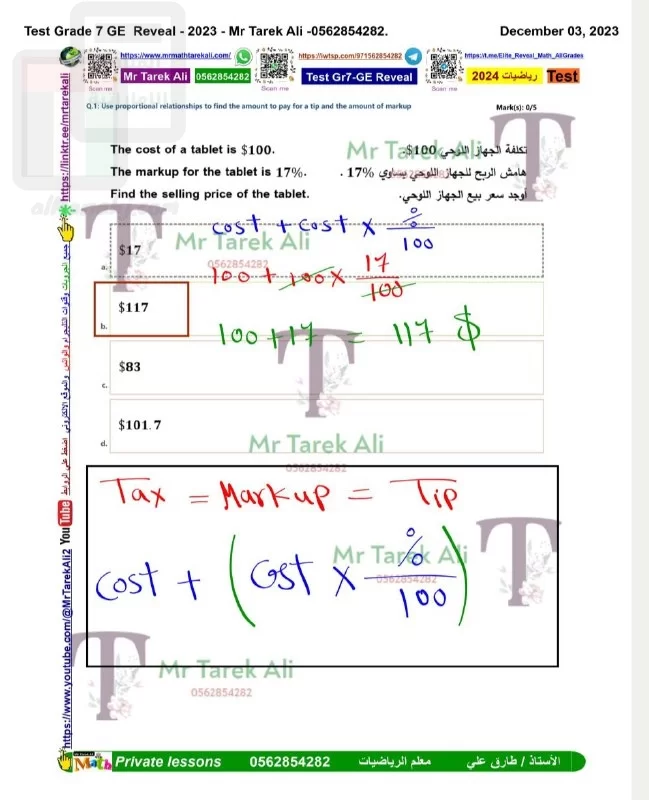 Test Grade 7 GE Reveal - 2023 - Mr Tarek Ali -0562854282. December 03, 2023
https://www.mrmathtarekali.com/ https://iwtsp.com/971562854282 https://t.me/Elite_Reveal_Math_AllGrades
Mr Tarek Ali 0562854282 Test Gr7-GE Reveal 2024 رياضيات Test
Scan me Scan me Scan me
Q.1: Use proportional relationships to find the amount to pay for a tip and the amount of markup Mark(s): 0/5
The cost of a tablet is $100. تكلفة الجهاز اللوحي 100$.
The markup for the tablet is 17%. هامش الربح للجهاز اللوحي يساوي 17% .
Find the selling price of the tablet. أوجد سعر بيع الجهاز اللوحي.
Mr Tarek Ali
cost + cost x %/100
a. $17
Mr Tarek Ali
0562854282
100 + 100 x 17/100
b. $117
100 + 17 = 117 $
c. $83
d. $101.7
Mr Tarek Ali
0562854282
Tax = Markup = Tip
cost + (cost x %/100)
Mr Tarek Ali
0562854282
Mr Tarek Ali
0562854282
https://linktr.ee/mrtarekali
https://www.youtube.com/@MrTarekAli2 YouTube
Math Private lessons 0562854282 معلم الرياضيات الأستاذ / طارق علي